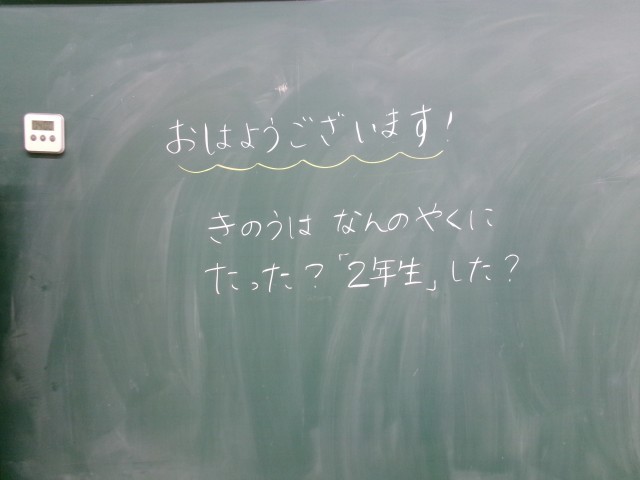 おはようございます!
きのうは なんのやくに
たった?「2年生」した?